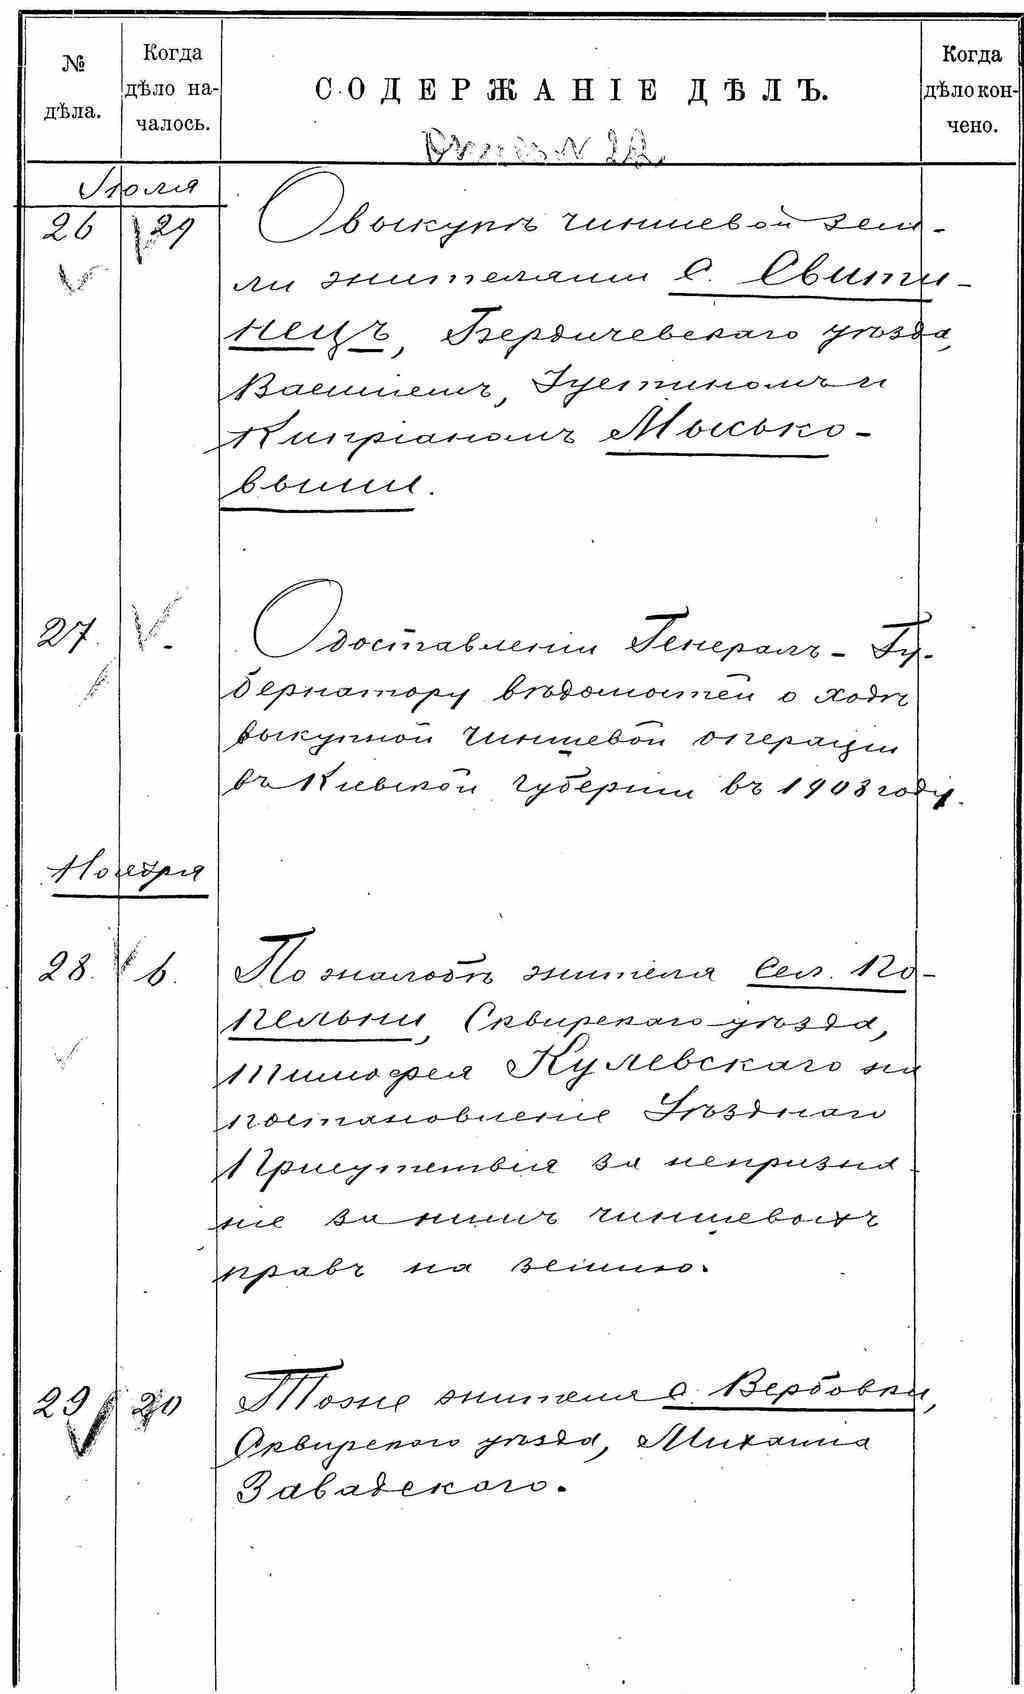 № дѣла.
Когда дѣло на-
чалось.
СОДЕРЖАНІЕ ДѢЛЪ.
Когда дѣло кон-
чено.
Іюля
26 29 О выкупѣ чиншевой зем-
ли жителями с. Свити-
нецъ, Бердичевскаго уѣзда,
Василіемъ, Іустиномъ и
Кипріаномъ Мысько-
выми.
27. О доставленіи Генералъ-Гу-
бернатору вѣдомостей о ходѣ
выкупной чиншевой операціи
въ Кіевской губерніи въ 1908 году.
Ноября
28. 6. По жалобѣ жителя сел. Ко-
пельни, Сквирскаго уѣзда,
Тимофея Кулевскаго на
постановленіе Уѣзднаго
Присутствія за непризна-
ніе за нимъ чиншевыхъ
правъ на землю.
29 20 Тоже жителя с. Вербовки,
Сквирскаго уѣзда, Михаила
Завадского.